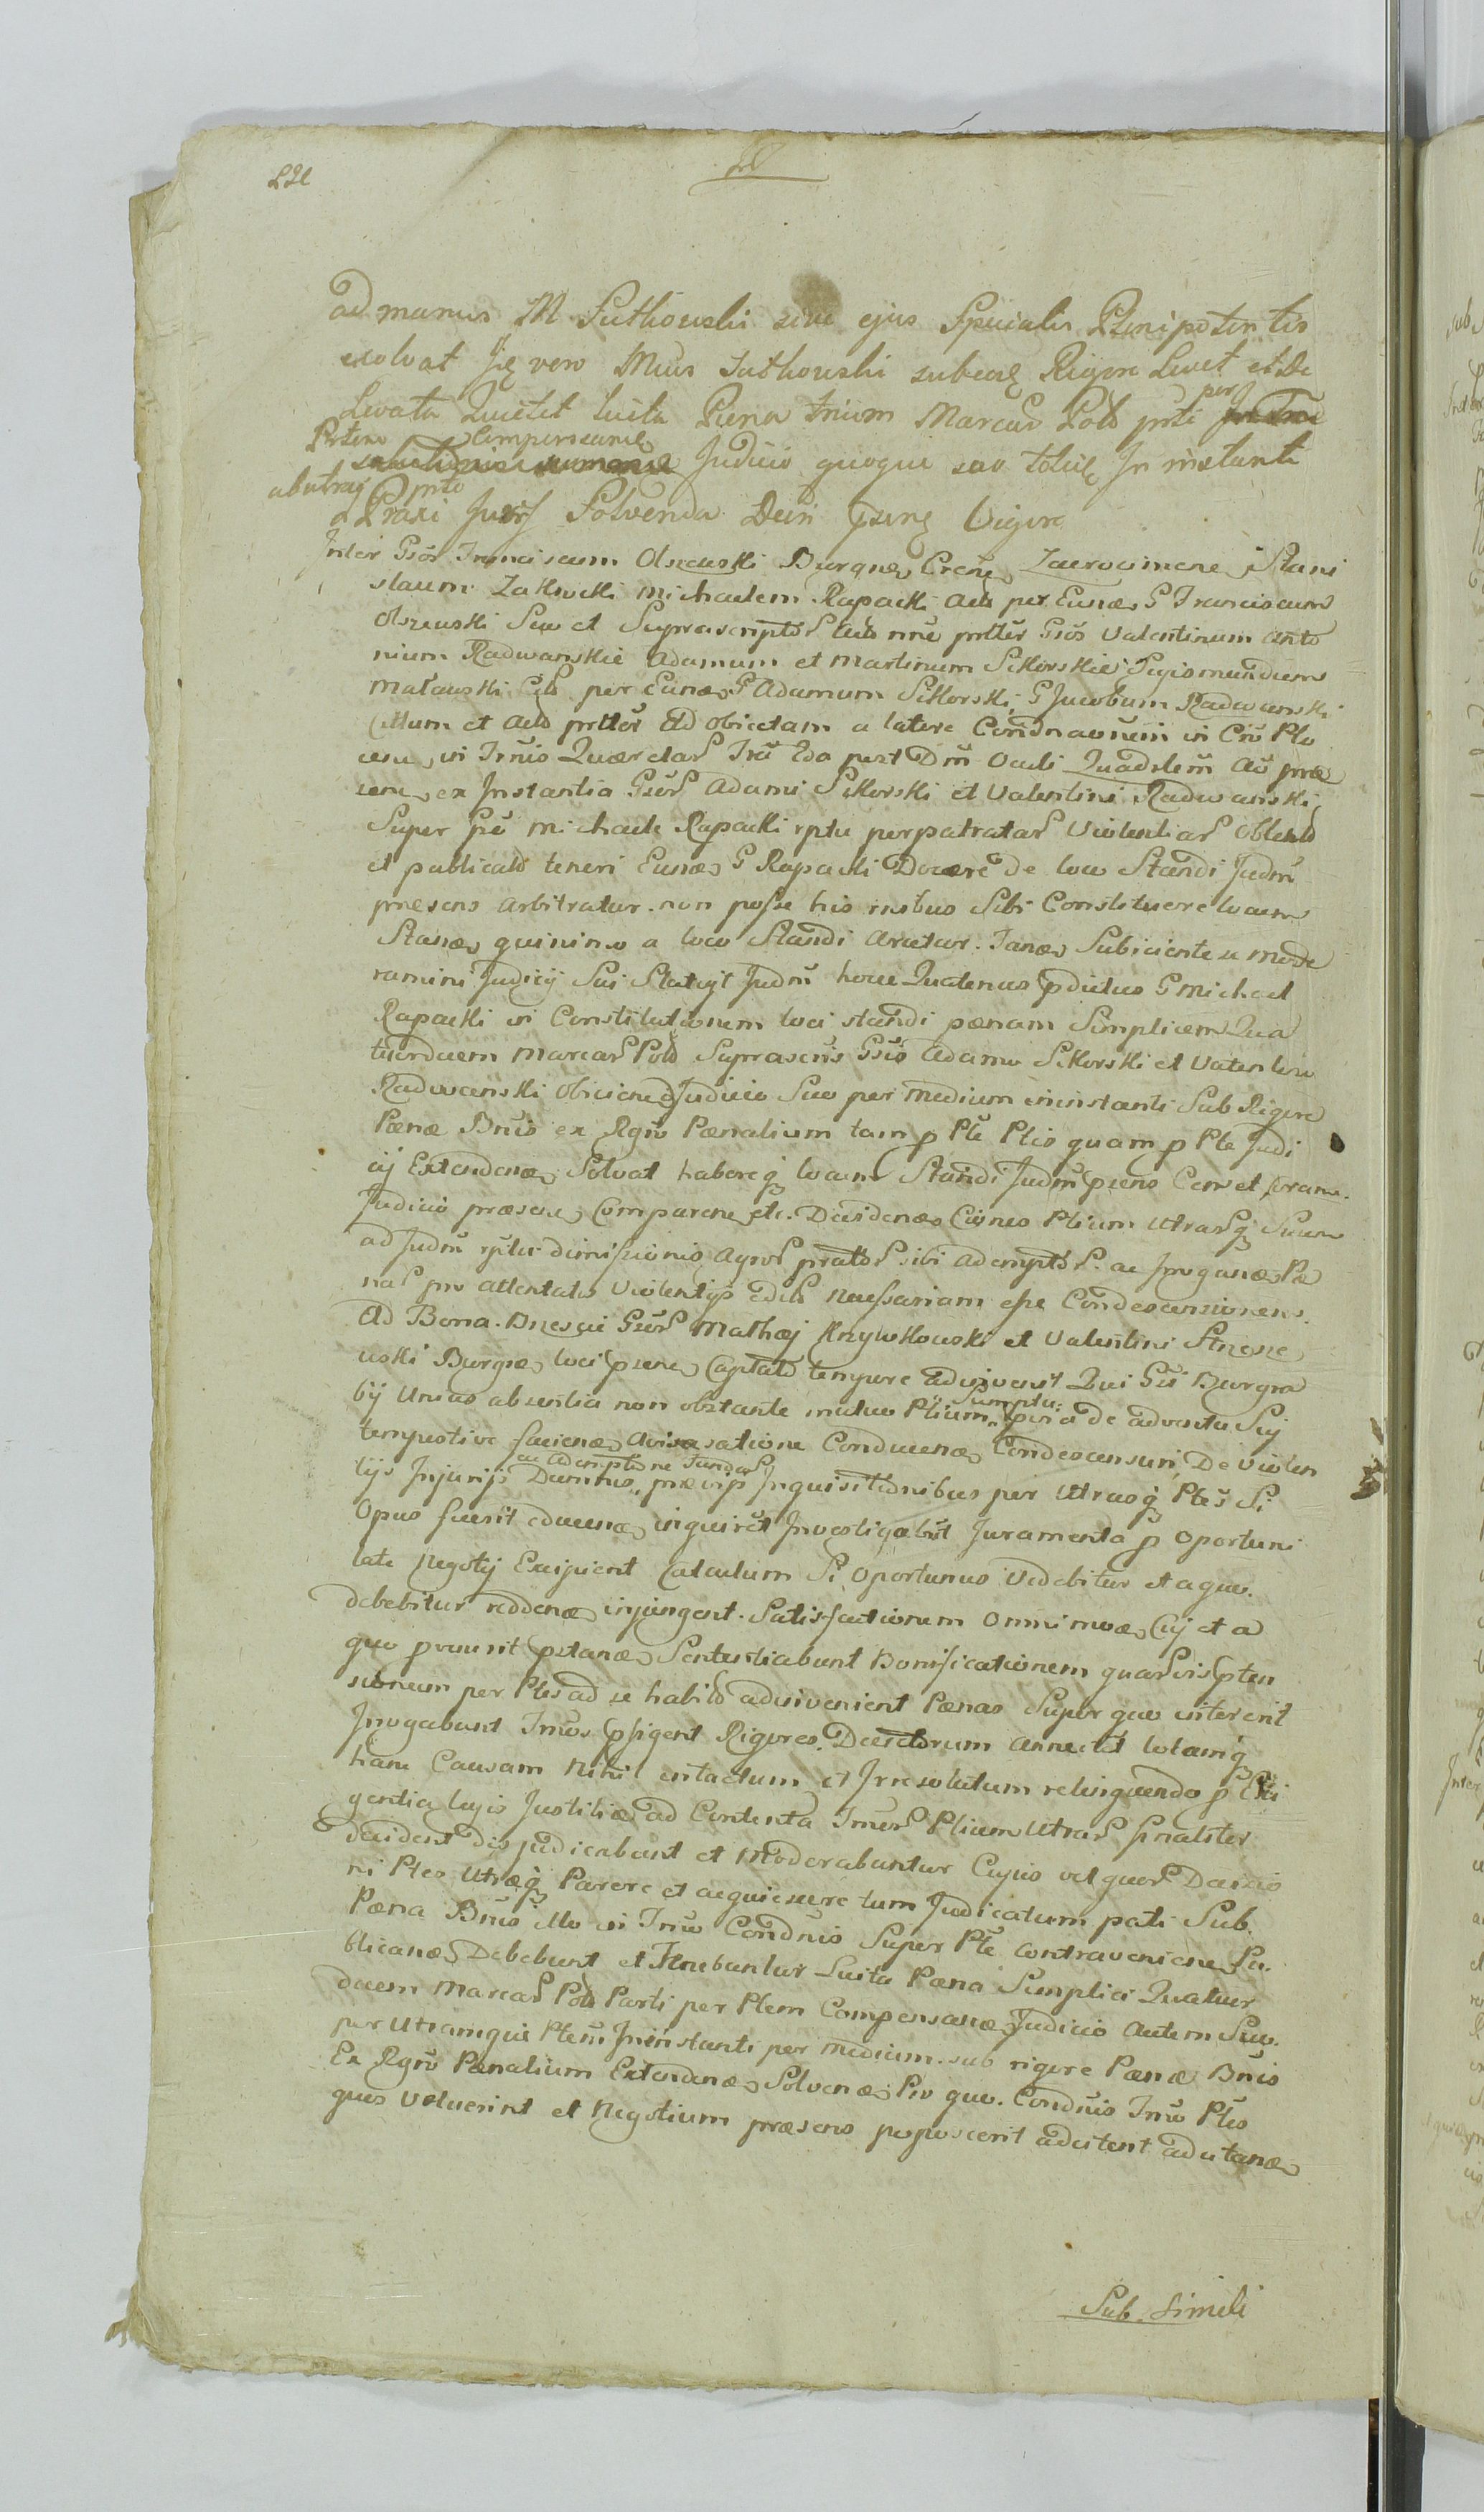 ad manus M Sutkowski sive ejus Specialis Plenipotentis
exolvat Hic vero Mcus Sutkowski sub eodem Rigore Levet et de
Levata Quietet Luita Pena trium Marcar Pold prti per
Parteno Compensand Judicio quoque suo totid In instanti
abutraq prte
a Praxi Juris Solvenda Decri psens Vigore
Inter Gsos Franciscum Olszewski Burgrab Crens Zacrocimens Stani
slaum Zakrocki Michaelem Rapacki Act per Eund G Franciscum
Olszewski Suo et Suprascriptor Act nne prtter Gsos Valentinum Anto
nium Radwanskie Adamum et Martinum Sikorskie Sigismundum
Małowski Cit per Eund G Adamum Sikorski G Jacobum Radwanski
Cittum et Act prtter Ad obiectam a latere Condnaonem in Crō Plo
cens in Trnis Querelar Fria 2da post Dm Oculi Quadrlem Aō prae
sens ex Instantia Gsor Adami Sikorski et Valentini Radwanski
Super Gso Michaele Rapacki rptu perpatratar Violentiar Obtent
et publicato teneri Eund G Rapacki Docere de loco Standi Judm
praesens arbitratur non posse his motivis Sibi Constituere locum
Stand quinimo a loco Standi arcetur. Tand Subiiciente se mode
ramini Judicij Sui Statuit Judm hocce Quatenus pdictus G Michael
Rapacki in Constitutionem loci standi paenam Simplicem Qua
tuordecem Marcar Pold Suprascris Gsis Adamo Sikorski et Valentino
Radwanski Obiiciend Judicio Suo per medium in instanti Sub Rigore
Paenae Bnis ex Rgro Paenalium tam p Pte Ptis quam p Pte Judi
cij Extendend Solvat habereq locum Standi Judm psens Censet coram
Judicio praesens Comparens etc. Decidend Csnes Ptium utrarq Suum
ad Judm rptu dimissionis Agror prator sibi ademptor ac Irrogand Pae
nar pro attentatis Violentijs edict necessariam esse Condescensionem
Ad Bona Dnescie Gsor Mathaej Krzywkowski et Valentini Strzesze
wski Burgrab loci psens Captato tempore adviverit Qui Gsi Burgra
bij Unius absentia non obstante mutuo Ptium Sumptu psio de adventu Sui
tempestive faciend Avisatione Conducend Condescensuri De Violen
tijs Injurijs Damnis ac Ademptione Fundor praevijs Inquisitionibus per Utrasq Ptes Si
Opus fuerit educend inquirent Investigabunt Juramenta p Oportuni
tate Negotij Excipient Calculum Si Oportunus Videbitur et a quo
debebitur reddend injungent Satisfactionem Omnimod Cuj et a
quo pvenerit pstand Sententiabunt Bonificationem quarvis pten
sionum per Ptes ad se habit advivenient Paenas Super quo intererit
Irrogabunt Trnos pfigent Rigores Decretorum Annectet totamq
hanc Causam Nihil intactum et Irresolutum relinquendo p Exi
gentia legis Justitiae ad Contenta Trnor Ptium utrar finaliter
decident disjudicabunt et Moderabuntur Cujus vel quor Decisio
ni Ptes Utraeq Parere et acquiescere tum Judicatum pati Sub
Paena Bnis illo in Trno Condnis Super Pte Contravenienc Pu
blicand Debebunt et Tenebuntur Luita Paena Simplici Quatuor
decem Marcar Pold Parti per Ptem Compensand Judicio Autem Suo
per Utramque Ptem In instanti per medium sub rigore Paenae Bnis
Ex Rgro Paenalium Extendend Solvend Pro quo Condnis Trno Ptes
quos Voluerint et Negotium praesens poposcerit adcitent adcitand
Sub Simili